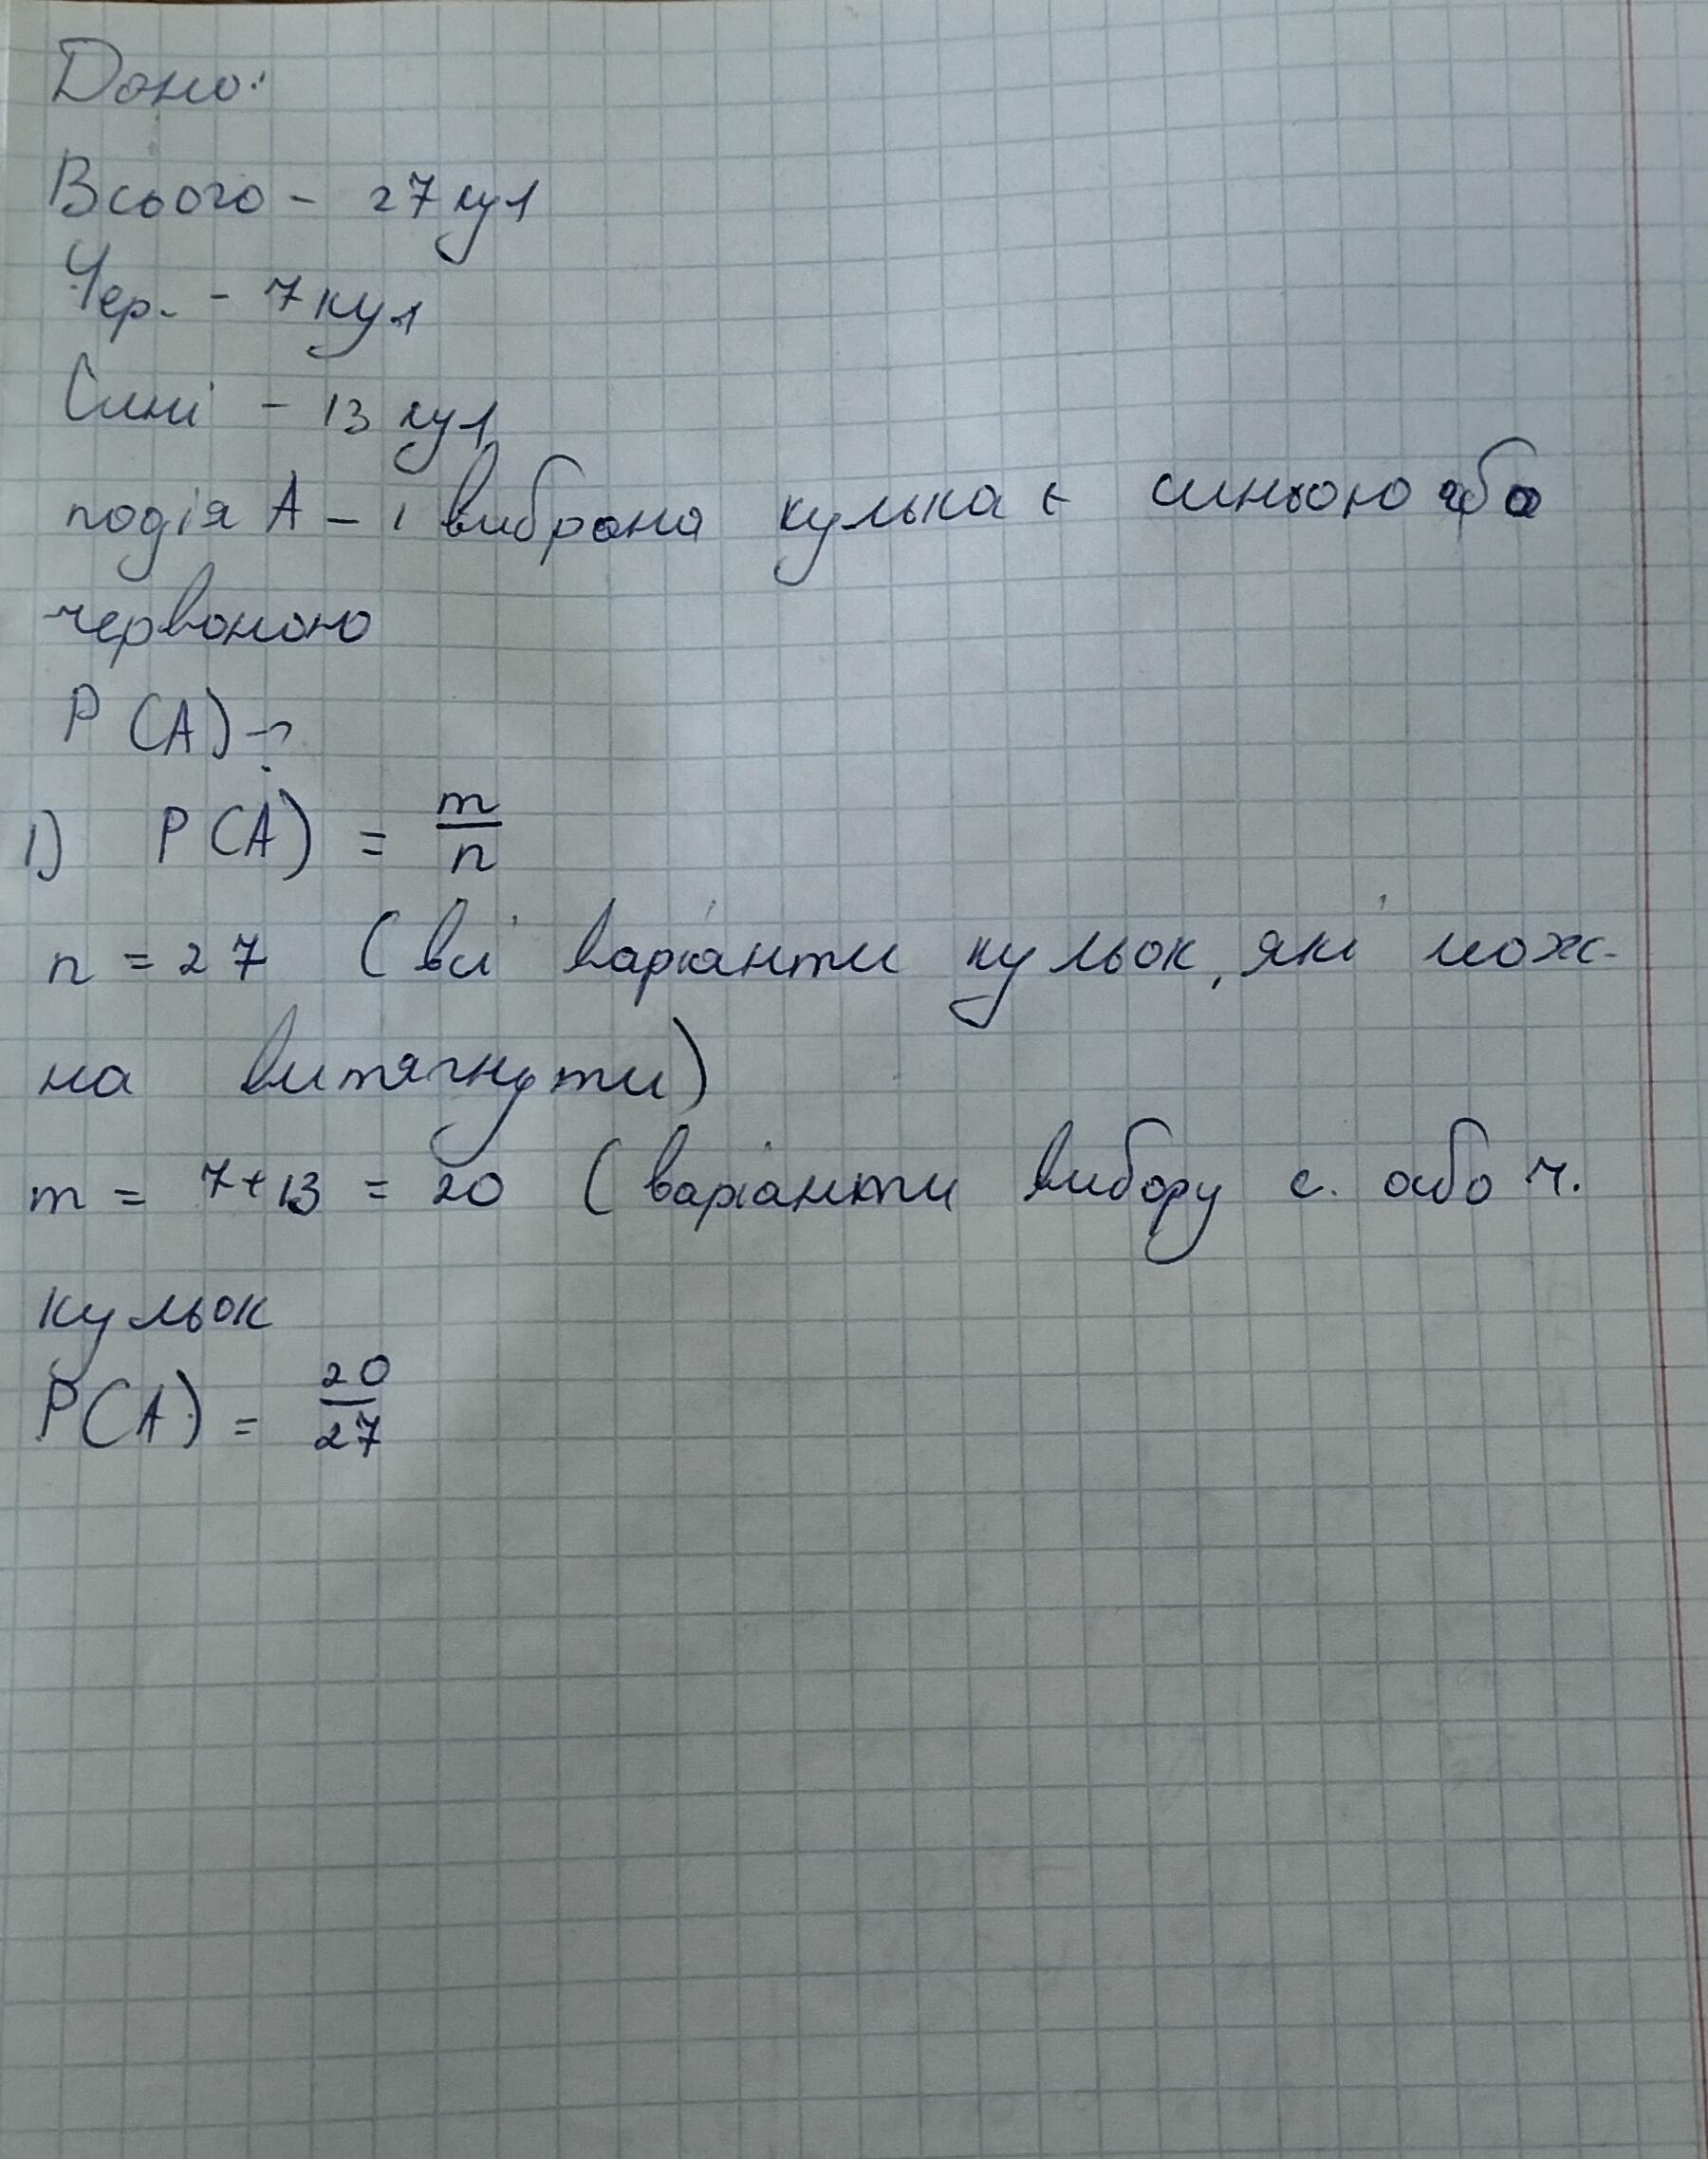 Дано:
Всього - 27 кул
Чер. - 7 кул
Сині - 13 кул
подія А - 1 вибрана кулька є синьою або
червоною
P(A) - ?
1) P(A) = m/n
n = 27 (всі варіанти кульок, які мож-
на витягнути)
m = 7+13 = 20 (варіанти вибору с. або ч.
кульок
P(A) = 20/27